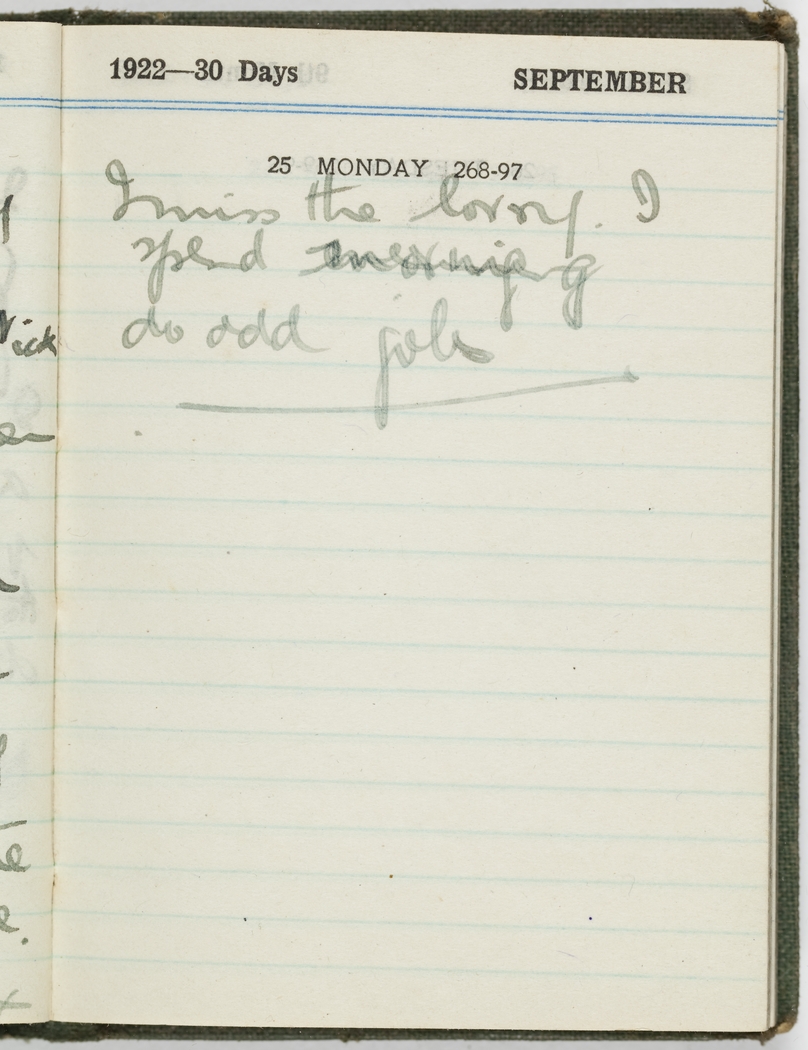 1922—30 Days SEPTEMBER
25 MONDAY 268-97
I miss the lorry. I
spend
do odd jobs
ick